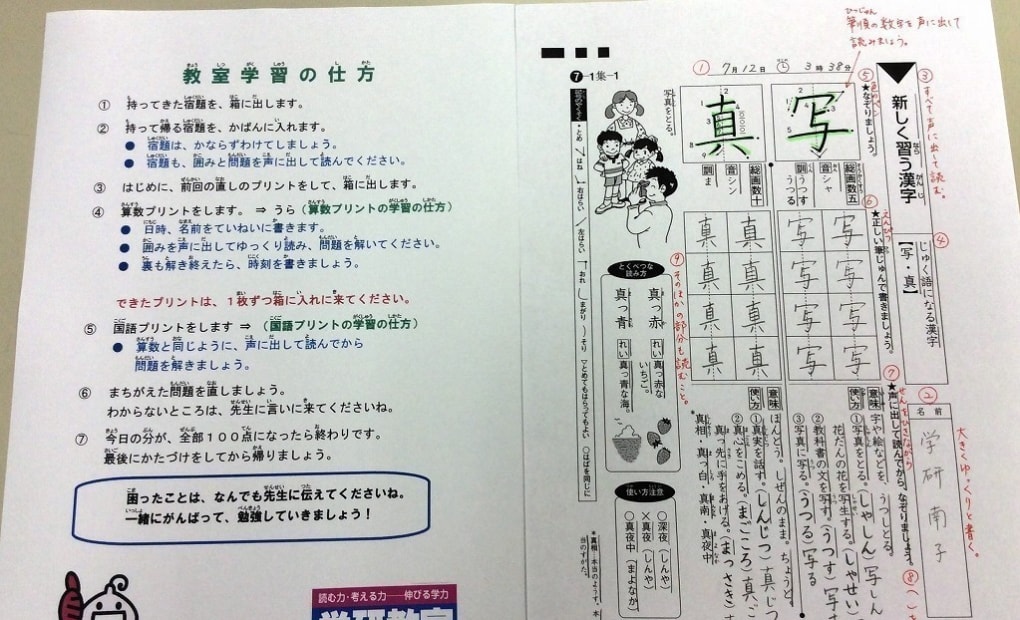 教室学習の仕方
① 持ってきた宿題を、箱に出します。
② 持って帰る宿題を、かばんに入れます。
● 宿題は、かならずわけてしましょう。
● 宿題も、囲みと問題を声に出して読んでください。
③ はじめに、前回の直しのプリントをして、箱に出します。
④ 算数プリントをします。 ⇒ うら(算数プリントの学習の仕方)
● 日時、名前をていねいに書きます。
● 囲みを声に出してゆっくり読み、問題を解いてください。
● 裏も解き終えたら、時刻を書きましょう。
できたプリントは、1枚ずつ箱に入れに来てください。
⑤ 国語プリントをします ⇒ (国語プリントの学習の仕方)
● 算数と同じように、声に出して読んでから
問題を解きましょう。
⑥ まちがえた問題を直しましょう。
わからないところは、先生に言いに来てくださいね。
⑦ 今日の分が、全部100点になったら終わりです。
最後にかたづけをしてから帰りましょう。
困ったことは、なんでも先生に伝えてくださいね。
一緒にがんばって、勉強していきましょう!
読む力・考える力――伸びる学力
学研教室
筆順の数字を声に出して
読みましょう。
① 7月12日 3時38分
❼-1集-1
③ すべて声に出して読む。
新しく習う漢字
④
じゅく語になる漢字
【写・真】
② 名前
学研南子
大きくゆっくりと書く。
⑤
★なぞりましょう。
写
総画数五
音 シャ
訓 うつす
うつる
真
総画数十
音 シン
訓 ま
写真をとる。
⑥ えんぴつ
★正しい筆じゅんで書きましょう。
写 写
写 写
写 写
写 写
真 真
真 真
真 真
真 真
⑦ せんをひきながら
★声に出して読んでから、なぞりましょう。
⑧
意味 字や絵などを、うつしとる。
使い方 ①写真をとる。(しゃしん)写しん
花だんの花を写生する。(しゃせい)
②教科書の文を写す。(うつす)写す
③写真に写る。(うつる)写る
意味 ほんとう。しぜんのまま。ちょうど。
使い方 ①真実を話す。(しんじつ)真じつ
②真心をこめる。(まごころ)真ご
真っ先に手をあげる。(まっさき)
*真相・真っ白・真南・真夜中
⑨ そのほかの部分も読むこと。
とくべつな読み方
真っ赤 れい 真っ赤ないちご。
真っ青 れい 真っ青な海。
使い方注意
○深夜(しんや)
×真夜(しんや)
○真夜中(まよなか)
*真相・本当のようす。本
当のすがた。
・とめ はね 右はらい 左はらい おれ まがり そり ▽とめてもはらってもよい ○はばを同じに